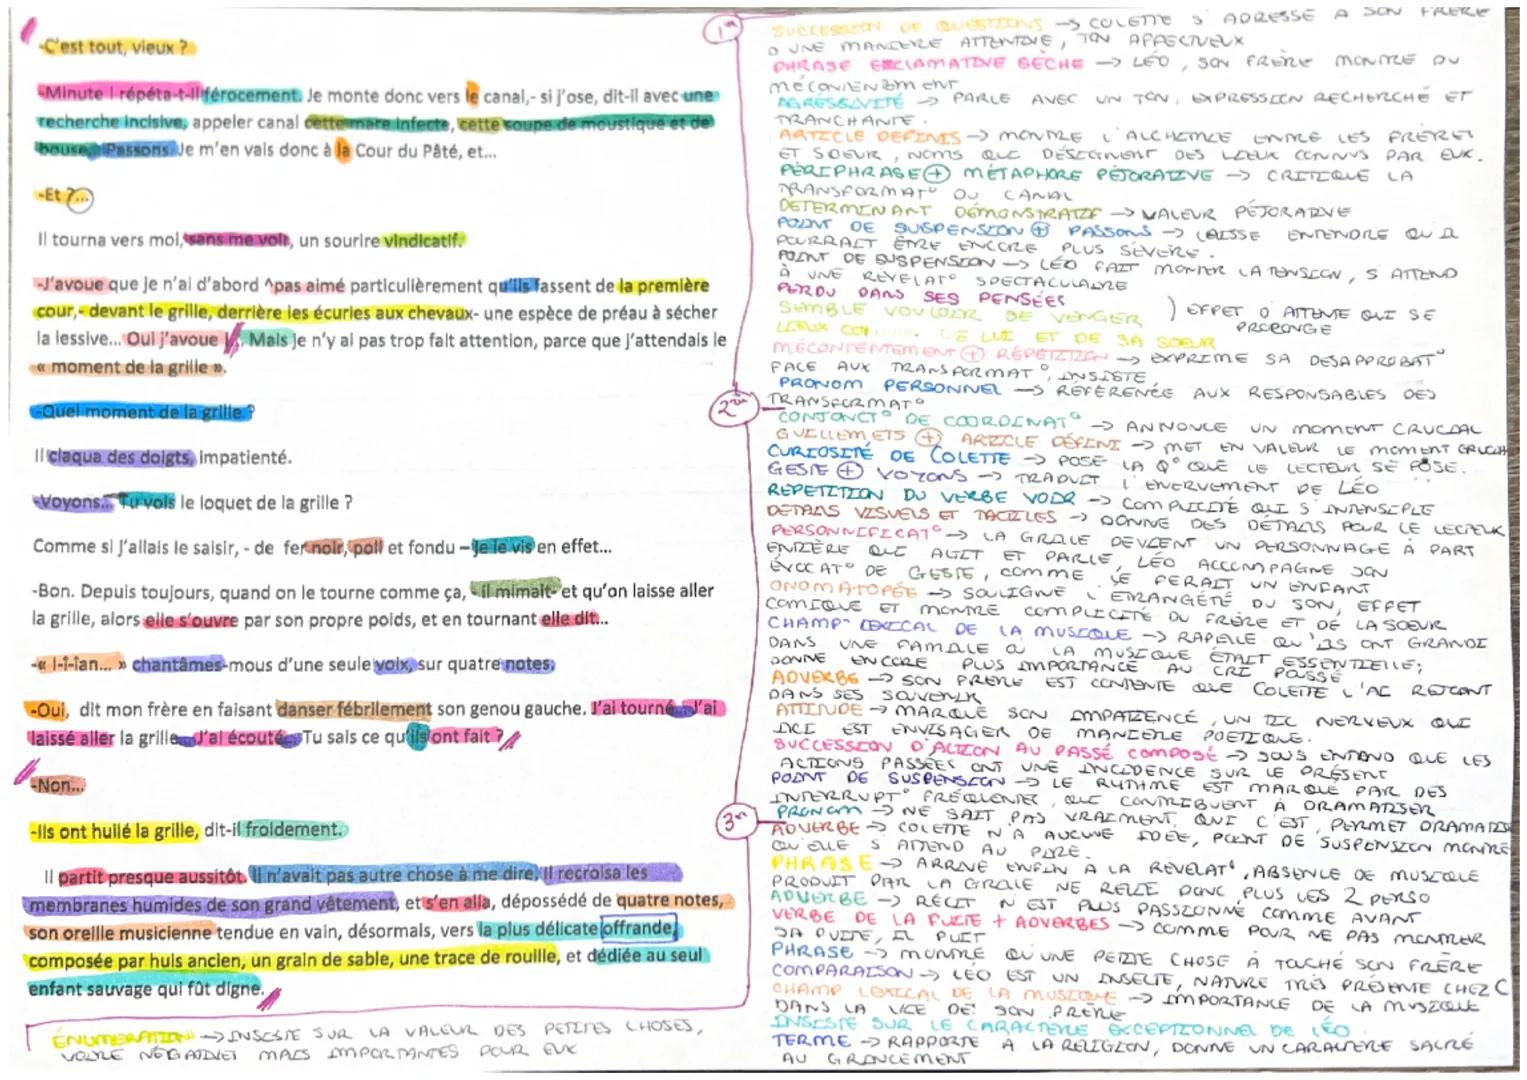 -C'est tout, vieux ?
-Minute ! répéta-t-il férocement. Je monte donc vers le canal,- si j'ose, dit-il avec une
recherche incisive, appeler canal cette mare infecte, cette soupe de moustique et de
bouse, Passons. Je m'en vais donc à la Cour du Pâté, et...
-Et ?...
Il tourna vers moi, sans me voir, un sourire vindicatif.
-J'avoue que je n'ai d'abord ^pas aimé particulièrement qu'ils fassent de la première
cour,- devant le grille, derrière les écuries aux chevaux- une espèce de préau à sécher
la lessive... Oui j'avoue ! Mais je n'y ai pas trop fait attention, parce que j'attendais le
« moment de la grille ».
-Quel moment de la grille ?
Il claqua des doigts, impatienté.
-Voyons... Tu vois le loquet de la grille ?
Comme si j'allais le saisir, - de fer noir, poli et fondu – je le vis en effet...
-Bon. Depuis toujours, quand on le tourne comme ça, - il mimait- et qu'on laisse aller
la grille, alors elle s'ouvre par son propre poids, et en tournant elle dit...
-« I-î-ïan... » chantâmes-mous d'une seule voix, sur quatre notes.
-Oui, dit mon frère en faisant danser fébrilement son genou gauche. J'ai tourné... J'ai
laissé aller la grille... J'ai écouté... Tu sais ce qu'ils ont fait ?
-Non...
-Ils ont huilé la grille, dit-il froidement.
Il partit presque aussitôt. Il n'avait pas autre chose à me dire. Il recroisa les
membranes humides de son grand vêtement, et s'en alla, dépossédé de quatre notes,
son oreille musicienne tendue en vain, désormais, vers la plus délicate offrande,
composée par huis ancien, un grain de sable, une trace de rouille, et dédiée au seul
enfant sauvage qui fût digne.
ÉNUMÉRATION -> INSISTE SUR LA VALEUR DES PETITES CHOSES,
VOIRE NÉGATIVES MAIS IMPORTANTES POUR EUX
1er
SUCCESSION DE QUESTIONS -> COLETTE S'ADRESSE A SON FRERE
D'UNE MANIERE ATTENTIVE, TON AFFECTUEUX
PHRASE EXCLAMATIVE SÈCHE -> LÉO, SON FRÈRE MONTRE DU
MÉCONTENTEMENT
AGRESSIVITÉ -> PARLE AVEC UN TON, EXPRESSION RECHERCHÉ ET
TRANCHANTE.
ARTICLE DEFINIS -> MONTRE L'ALCHIMIE ENTRE LES FRÈRES
ET SOEUR, NOMS QUI DÉSIGNENT DES LIEUX CONNUS PAR EUX.
PÉRIPHRASE + MÉTAPHORE PÉJORATIVE -> CRITIQUE LA
TRANSFORMAT° DU CANAL
DETERMINANT DÉMONSTRATIF -> VALEUR PÉJORATIVE
POINT DE SUSPENSION + PASSONS -> LAISSE ENTENDRE QU'IL
POURRAIT ÊTRE ENCORE PLUS SÉVERE.
POINT DE SUSPENSION -> LÉO FAIT MONTER LA TENSION, S'ATTEND
À UNE RÉVÉLAT° SPECTACULAIRE
PERDU DANS SES PENSÉES
SEMBLE VOULOIR SE VENGER ) EFFET D'ATTENTE QUI SE
PROLONGE
LIEUX DE LUI ET DE SA SOEUR
MÉCONTENTEMENT + RÉPÉTITION -> EXPRIME SA DESAPPROBAT°
FACE AUX TRANSFORMAT°, INSISTE
PRONOM PERSONNEL -> RÉFÉRENCE AUX RESPONSABLES DES
TRANSFORMAT°
2ème
CONJONCT° DE COORDINAT° -> ANNONCE UN MOMENT CRUCIAL
GUILLEMETS + ARTICLE DÉFINI -> MET EN VALEUR LE MOMENT CRUCIAL
CURIOSITÉ DE COLETTE -> POSE LA Q° QUE LE LECTEUR SE POSE.
GESTE + VOYONS -> TRADUIT L'ENERVEMENT DE LÉO
RÉPÉTITION DU VERBE VOIR -> COMPLICITÉ QUI S'INTENSIFIE
DÉTAILS VISUELS ET TACTILES -> DONNE DES DÉTAILS POUR LE LECTEUR
PERSONNIFICAT° -> LA GRILLE DEVIENT UN PERSONNAGE À PART
ENTIÈRE QUI AGIT ET PARLE, LÉO ACCOMPAGNE SON
ÉVOCAT° DE GESTE, COMME LE FERAIT UN ENFANT
ONOMATOPÉE -> SOULIGNE L'ETRANGETÉ DU SON, EFFET
COMIQUE ET MONTRE COMPLICITÉ DU FRÈRE ET DE LA SOEUR
CHAMP LEXICAL DE LA MUSIQUE -> RAPELLE QU'ILS ONT GRANDI
DANS UNE FAMILLE OÙ LA MUSIQUE ÉTAIT ESSENTIELLE;
DONNE ENCORE PLUS IMPORTANCE AU CRI POUSSÉ
ADVERBE -> SON FRERE EST CONTENTE QUE COLETTE L'AI REJOINT
DANS SES SOUVENIR
ATTITUDE -> MARQUE SON IMPATIENCE, UN TIC NERVEUX QUI
ICI EST ENVISAGER DE MANIÈRE POETIQUE.
SUCCESSION D'ACTION AU PASSÉ COMPOSÉ -> SOUS ENTEND QUE LES
ACTIONS PASSÉES ONT UNE INCIDENCE SUR LE PRÉSENT
POINT DE SUSPENSION -> LE RYTHME EST MARQUÉ PAR DES
INTERRUPT° FRÉQUENTES, QUI CONTRIBUENT À DRAMATISER
3e
PRONOM -> NE SAIT PAS VRAIMENT QUI C'EST, PERMET DRAMATIS
ADVERBE -> COLETTE N'A AUCUNE IDÉE, POINT DE SUSPENSION MONTRE
QU'ELLE S'ATTEND AU PIRE.
PHRASE -> ARRIVE ENFIN À LA RÉVÉLAT°, ABSENCE DE MUSIQUE
PRODUIT PAR LA GRILLE NE RELIE DONC PLUS LES 2 PERSO
ADVERBE -> RÉCIT N'EST PLUS PASSIONNÉ COMME AVANT
VERBE DE LA FUITE + ADVERBES -> COMME POUR NE PAS MONTRER
SA FUITE, IL FUIT
PHRASE -> MONTRE QU'UNE PETITE CHOSE À TOUCHÉ SON FRÈRE
COMPARAISON -> LÉO EST UN INSECTE, NATURE TRÈS PRÉSENTE CHEZ C
CHAMP LEXICAL DE LA MUSIQUE -> IMPORTANCE DE LA MUSIQUE
DANS LA VIE DE SON FRÈRE
INSISTE SUR LE CARACTERE EXCEPTIONNEL DE LÉO
TERME -> RAPPORTE À LA RELIGION, DONNE UN CARACTERE SACRÉ
AU GRINCEMENT